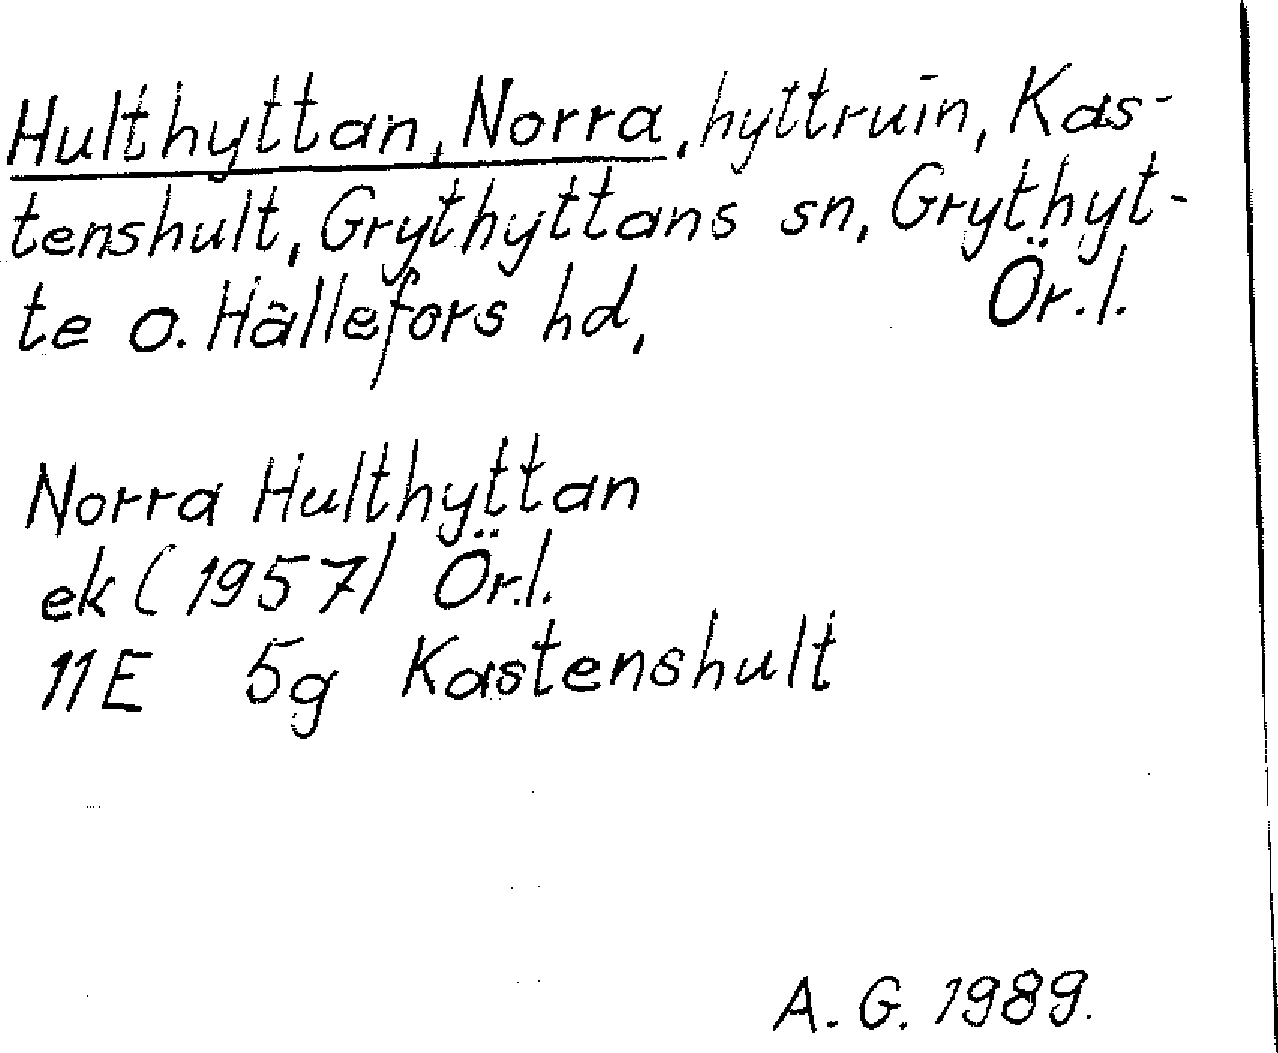 Hulthyttan, Norra, hyttruin, Kas-
tenshult, Grythyttans sn, Grythyt-
te o. Hällefors hd, Ör. l.
Norra Hulthyttan
ek (1957) Ör. l.
11E 5g Kastenshult
A. G. 1989.